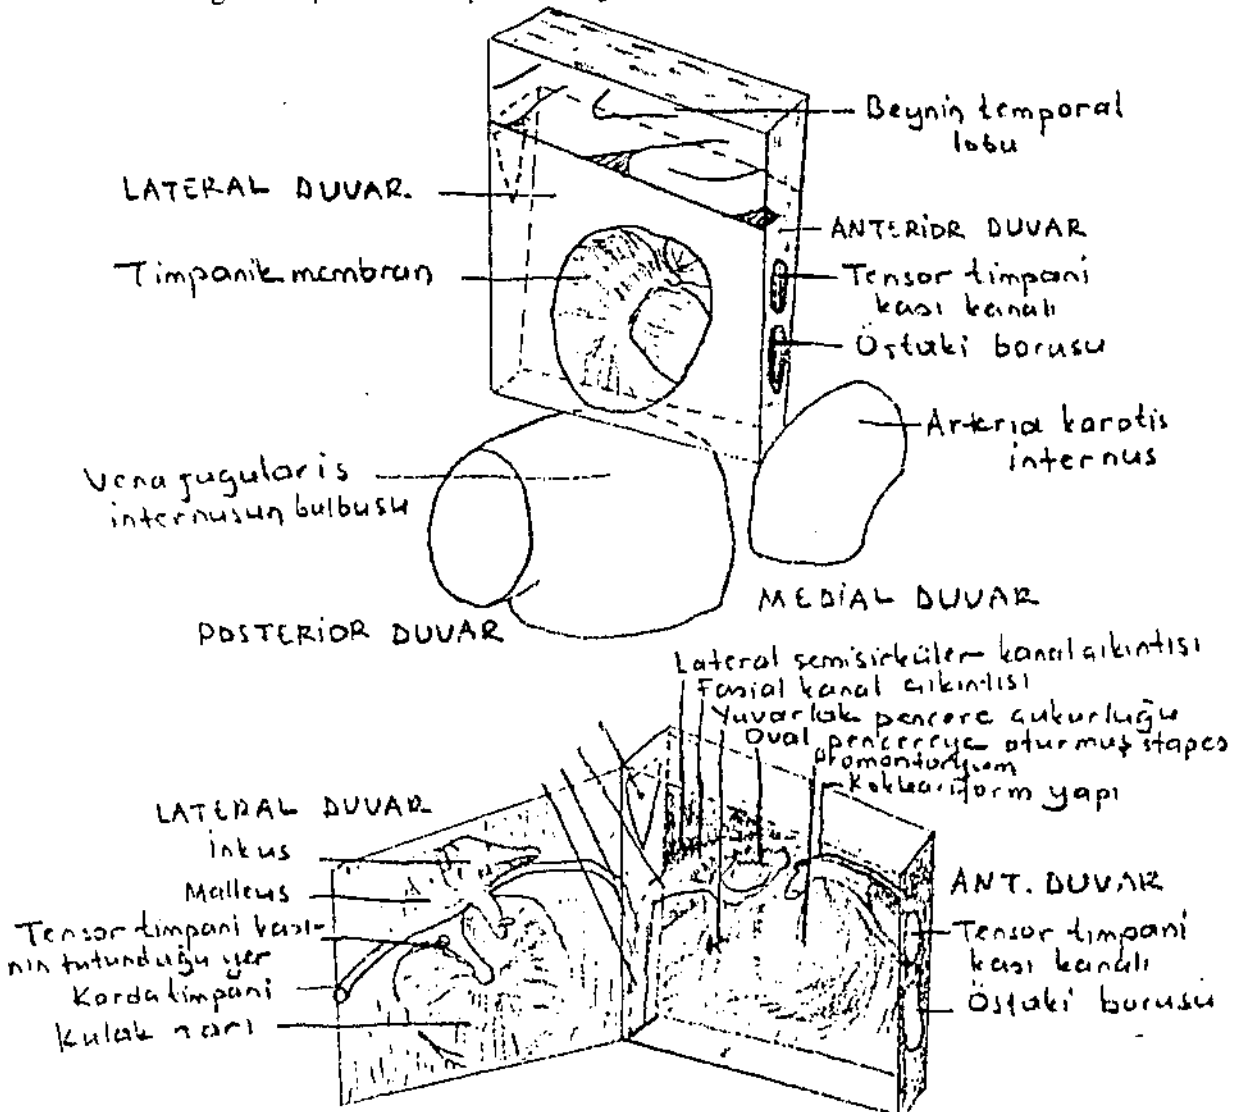 Beynin temporal
lobu
LATERAL DUVAR.
ANTERİOR DUVAR
Timpanik membran
Tensor timpani
kası kanalı
Östaki borusu
Arteria karotis
internus
Vena jugularis
internusun bulbusu
MEDİAL DUVAR
POSTERİOR DUVAR
Lateral semisirküler kanal çıkıntısı
Fasial kanal çıkıntısı
Yuvarlak pencere çukurluğu
Oval pencereye oturmuş stapes
Promontoryum
Kokleariform yapı
LATERAL DUVAR
İnkus
Malleus
Tensor timpani kası-
nın tutunduğu yer
Korda timpani
Kulak zarı
ANT. DUVAR
Tensor timpani
kası kanalı
Östaki borusu